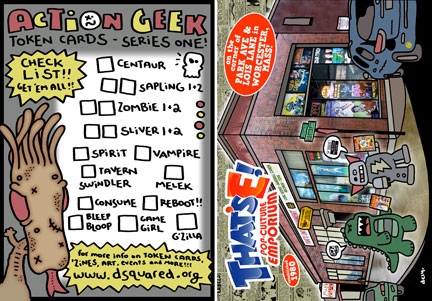 ACTION GEEK
TOKEN CARDS - SERIES ONE!
CHECK
LIST!!
GET 'EM ALL!!
CENTAUR
SAPLING 1+2
ZOMBIE 1+2
SLIVER 1+2
SPIRIT
VAMPIRE
TAVERN
SWINDLER
MELEK
CONSUME
REBOOT!!
BLEEP
BLOOP
GAME
GIRL
G'ZILLA
for more info on TOKEN CARDS,
'ZINES, ART, EVENTS and MORE!!!
www.dsquared.org
on the
corner of
PARK AVE &
LOIS LANE in
WORCESTER,
MASS!
THAT'S E!
POP-CULTURE
EMPORIUM
1980